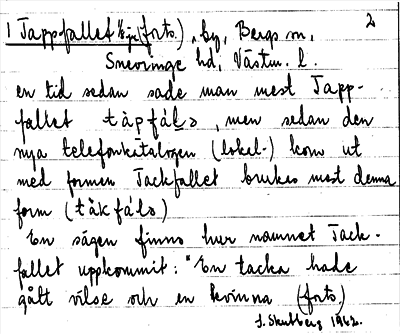 1 Tappfallet (forts.), by, Bergs sn, 2
Snevringe hd, Västm. l.
en tid sedan sade man mest Tapp-
fallet tàpfáļɘ, men sedan den
nya telefonkatalogen (lokal-) kom ut
med formen Tackfallet brukas mest denna
form (tákfáļɘ)
En sägen finns hur namnet Tack-
fallet uppkommit: "En tacka hade
gått vilse och en kvinna (forts.)
J. Skullberg 1962.